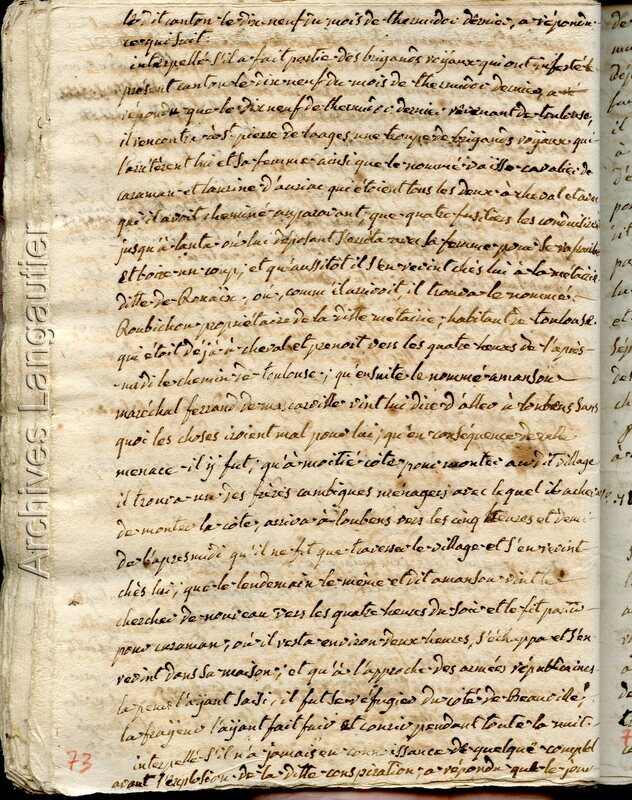 le dit canton le dix neuf du mois de thermidor dernier, a répondu
ce qui suit.
interpellé s'il a fait partie des brigands royaux qui ont infesté le
présent canton le dix neuf du mois de thermidor dernier, a
répondu que le dix neuf de thermidor dernier revenant de toulouse,
il rencontra a St. pierre de lages une troupe de brigands royaux qui
l'arrêterent lui et sa femme ainsi que le nommé vaisse cavalier de
caraman et laurine d'auriac qui étoient tous les deux à cheval et avec
qui il avoit cheminé auparavant, que quatre fusiliers les conduisirent
jusqu'à lanta où lui déposant s'arrêta avec la femme pour se rafraichir
et boire un coup, et qu'aussitôt il s'en revint chés lui à la métairie
ditte de Renaix, où, comm'il arrivoit, il trouva le nommé
Roubichon propriétaire de la ditte métairie, habitant de toulouse
qui étoit déjà à cheval et prenoit vers les quatre heures de l'après
midi le chemin de toulouse; qu'ensuite le nommé amanson
maréchal ferrand de mascarville vint lui dire d'aller à loubens sans
quoi les choses iroient mal pour lui; qu'en conséquence de cette
menace il y fut, qu'à moitié côte pour monter au dit village
il trouva un des frères cambigues ménagers avec lequel il acheva
de monter la côte, arriva à loubens vers les cinq heures et demi
de l'après midi qu'il ne fit que traverser le village et s'en revint
chés lui; que le lendemain le même et dit amanson vint le
chercher de nouveau vers les quatre heures du soir et le fit partir
pour caraman, où il resta environ deux heures, s'échappa et s'en
revint dans sa maison; et qu'à l'approche des armées républicaines
la peur l'ayant saisi, il fut se réfugier du côté de Beauville,
la frayeur l'ayant fait fuir et courir pendant toute la nuit.
interpellé s'il n'a jamais eu connoissance de quelque complot
avant l'explosion de la ditte conspiration, a répondu que le jour
73
Archives Langautier